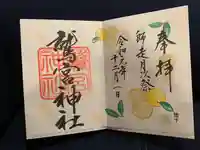 奉拝
師走月次祭
令和元年
十二月一日
鷲宮神社